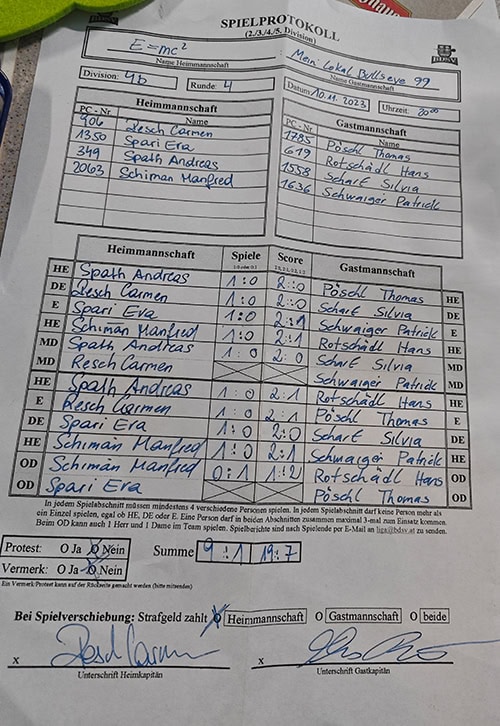 SPIELPROTOKOLL
(2./3./4./5. Division)
BDSV
E=mc² Mein Lokal Bullseye 99
Name Heimmannschaft Name Gastmannschaft
Division: 4b Runde: 4 Datum: 10.11.2023 Uhrzeit: 20⁰⁰
Heimmannschaft Gastmannschaft
PC - Nr Name PC - Nr Name
906 Resch Carmen 1785 Pöschl Thomas
1350 Spari Eva 619 Rotschädl Hans
349 Spath Andreas 1558 Scharf Silvia
2063 Schiman Manfred 1636 Schwaiger Patrick
Heimmannschaft Spiele Score Gastmannschaft
HE Spath Andreas 1:0 2:0 Pöschl Thomas HE
DE Resch Carmen 1:0 2:0 Scharf Silvia DE
E Spari Eva 1:0 2:1 Schwaiger Patrick E
HE Schiman Manfred 1:0 2:1 Rotschädl Hans HE
MD Spath Andreas 1:0 2:0 Scharf Silvia MD
MD Resch Carmen Schwaiger Patrick MD
HE Spath Andreas 1:0 2:1 Rotschädl Hans HE
E Resch Carmen 1:0 2:1 Pöschl Thomas E
DE Spari Eva 1:0 2:0 Scharf Silvia DE
HE Schiman Manfred 1:0 2:1 Schwaiger Patrick HE
OD Schiman Manfred 0:1 1:2 Rotschädl Hans OD
OD Spari Eva Pöschl Thomas OD
In jedem Spielabschnitt müssen mindestens 4 verschiedene Personen spielen. In jedem Spielabschnitt darf keine Person mehr als
ein Einzel spielen, egal ob HE, DE oder E. Eine Person darf in beiden Abschnitten zusammen maximal 3-mal zum Einsatz kommen.
Beim OD kann auch 1 Herr und 1 Dame im Team spielen. Spielberichte sind nach Spielende per E-Mail an liga@bdsv.at zu senden.
Protest: O Ja O Nein Summe 9:1 19:7
Vermerk: O Ja O Nein
Ein Vermerk/Protest kann auf der Rückseite gemacht werden (bitte mitsenden)
Bei Spielverschiebung: Strafgeld zahlt O Heimmannschaft O Gastmannschaft O beide
x Resch Carmen x
Unterschrift Heimkapitän Unterschrift Gastkapitän